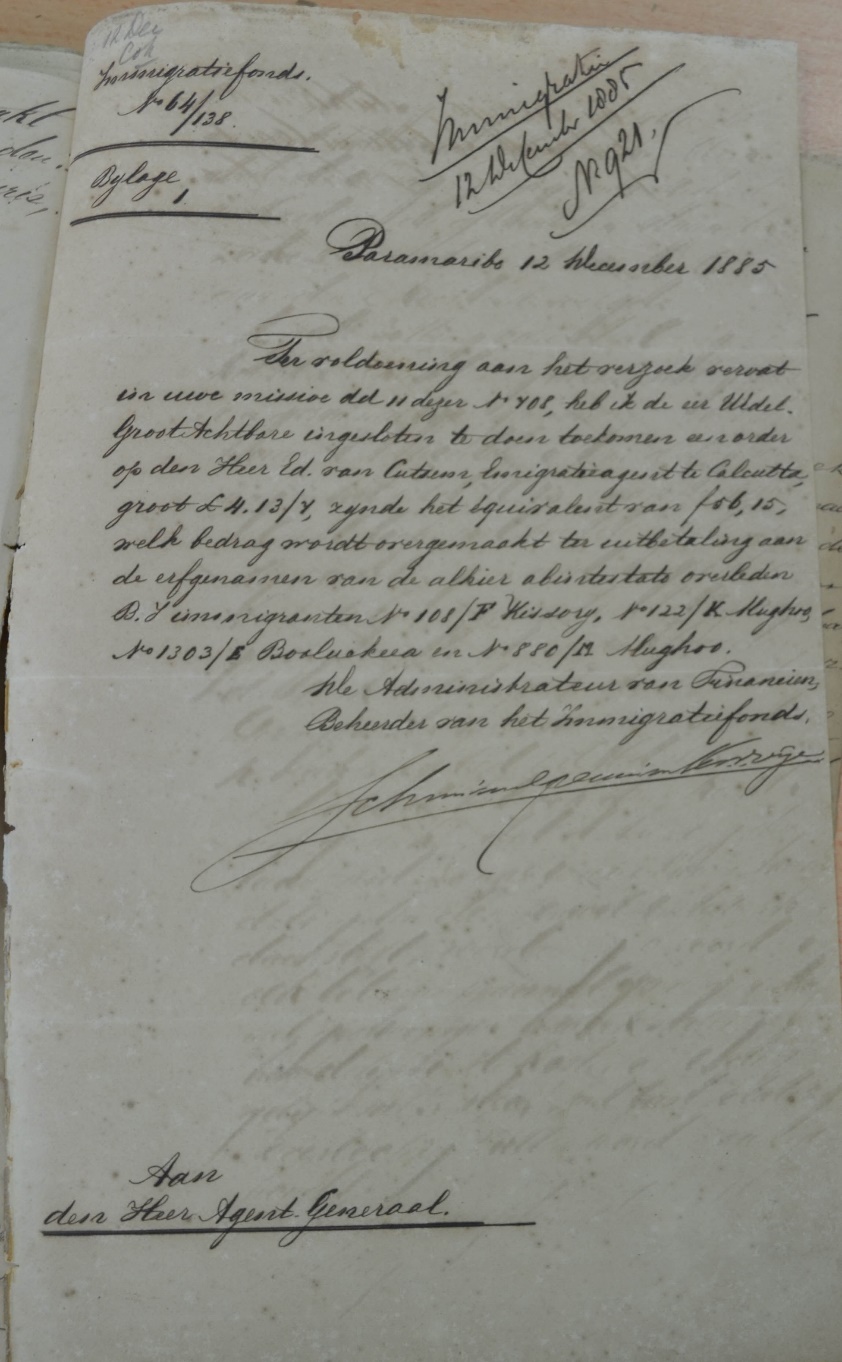 12 Dec
Immigratiefonds.
No 64/138.
Bylage
1
Immigratie
12 December 1885
No 921.
Paramaribo 12 December 1885
Ter voldoening aan het verzoek vervat
in uwe missive dd 11 dezer No 708, heb ik de eer UEdel.
GrootAchtbare ingesloten te doen toekomen een order
op den Heer Ed. van Cutsem, Emigratieagent te Calcutta,
groot £ 4.13/7, zynde het equivalent van f 56,15,
welk bedrag wordt overgemaakt ter uitbetaling aan
de erfgenamen van de alhier abintestato overleden
B. I immigranten No 108/F Kissory, No 122/K Mughoo,
No 1303/E Booluckeea en No 880/M Mughoo.
De Administrateur van Financien,
Beheerder van het Immigratiefonds,
Aan
den Heer Agent-Generaal.